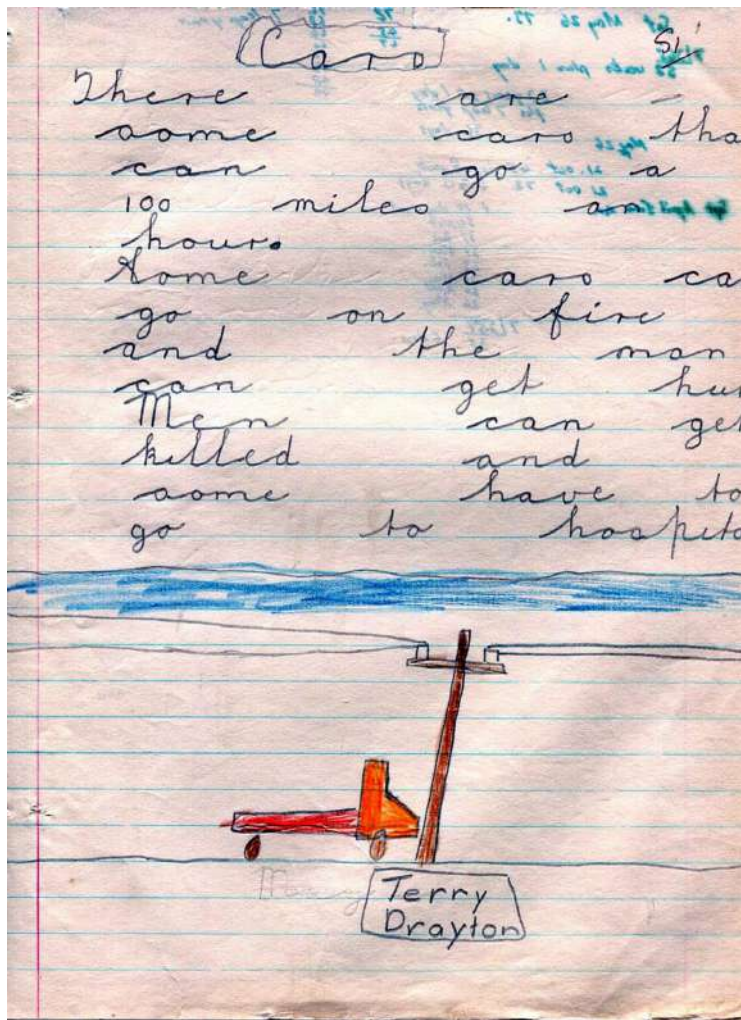 Cars
There are
some cars tha
can go a
100 miles an
hour.
Some cars ca
go on fire
and the man
can get hur
Men can get
killed and
some have to
go to hospita
Terry
Drayton